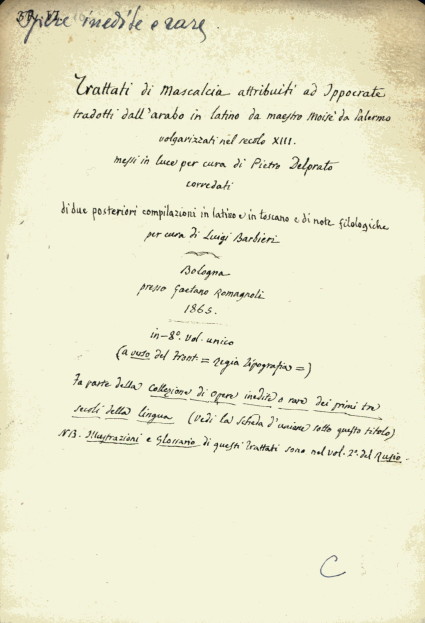 Opere inedite e rare
Trattati di Mascalcia attribuiti ad Ippocrate
tradotti dall'arabo in latino da maestro Moisè da Palermo
volgarizzati nel secolo XIII.
messi in luce per cura di Pietro Delprato
corredati
di due posteriori compilazioni in latino e in toscano e di note filologiche
per cura di Luigi Barbieri
Bologna
presso Gaetano Romagnoli
1865.
in-8º. vol. unico
(a verso del Front: = Regia Tipografia =)
Fa parte della Collezione di opere inedite o rare dei primi tre
secoli della lingua (Vedi la Scheda d'unione sotto questo titolo)
NB. Illustrazioni e Glossario di questi Trattati sono nel vol. 2º. del Rusio.
C